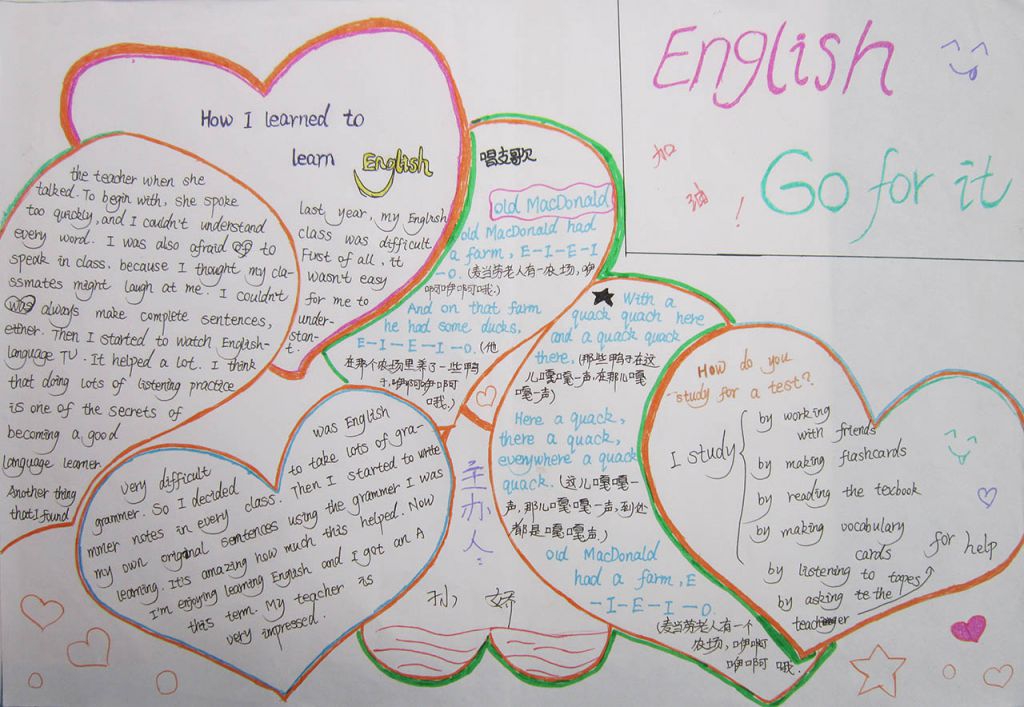 English
加
油
!
Go for it
How I learned to
learn English
last year, my English
class was difficult
First of all, it
wasn't easy
for me to
under-
stan-
t.
the teacher when she
talked. To begin with, she spoke
too quickly, and I couldn't understand
every word. I was also afraid to
speak in class. because I thought my cla-
ssmates might laugh at me. I couldn't
was always make complete sentences,
either. Then I started to watch English-
language TV. It helped a lot. I think
that doing lots of listening practice
is one of the secrets of
becoming a good
language learner.
Another thing
that I found
was English
very difficult
to take lots of gra-
grammer. So I decided
mmer notes in every class. Then I started to write
my own original sentences using the grammer I was
learning. It's amazing how much this helped. Now
I'm enjoying learning English and I got an A
this term. My teacher is
very impressed.
唱支歌
old MacDonald
old MacDonald had
a farm, E-I-E-I
-O. (麦当劳老人有一农场,咿
啊咿啊哦.)
And on that farm
he had some ducks,
E-I-E-I-O. (他
在那个农场里养了一些鸭
子,咿啊咿啊
哦.)
With a
quack quach here
and a quack quack
there, (那些鸭子在这
儿嘎嘎一声,在那儿嘎
嘎一声)
Here a quack,
there a quack,
everywhere a quack
quack. (这儿嘎嘎一
声,那儿嘎嘎一声,到处
都是嘎嘎声.)
old MacDonald
had a farm, E
-I-E-I-O.
(麦当劳老人有一个
农场,咿啊
咿啊 哦.
主
办
人:
孙 娇
How do you
study for a test?
I study
by working
with friends
by making flashcards
by reading the texbook
by making vocabulary
cards
by listening to tapes
by asking te the
teacher
for help